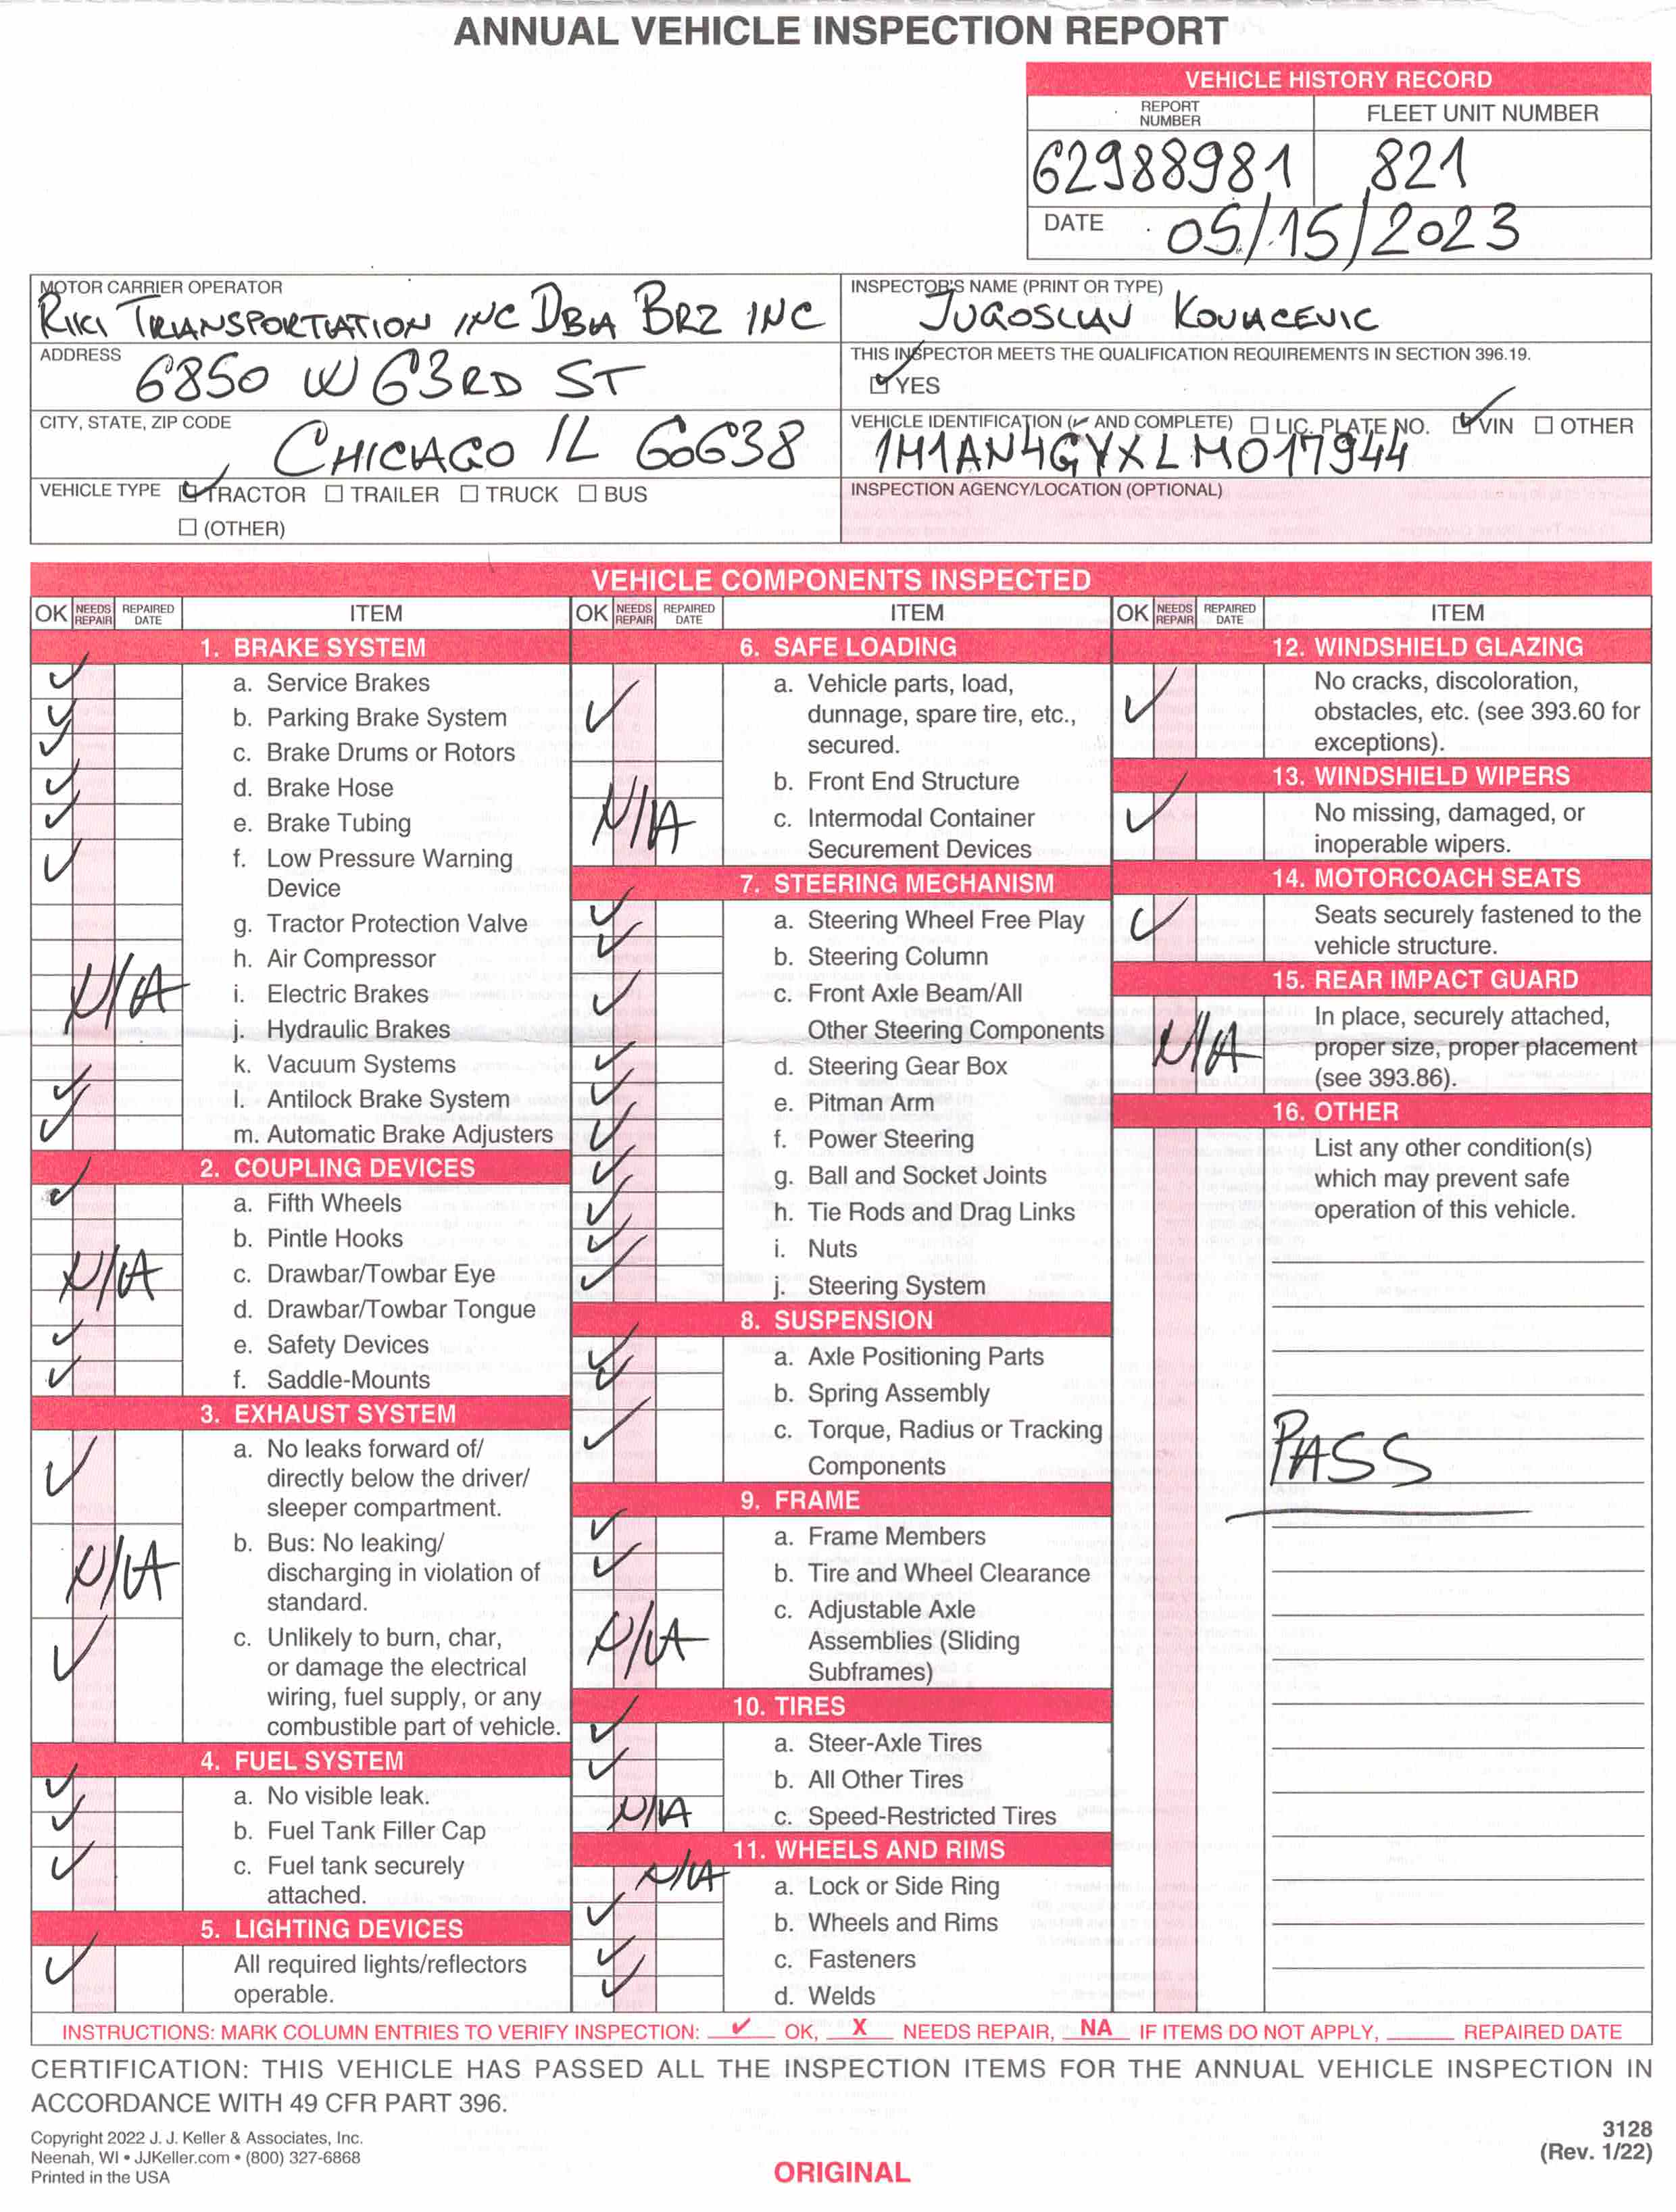 ANNUAL VEHICLE INSPECTION REPORT
VEHICLE HISTORY RECORD
REPORT NUMBER
FLEET UNIT NUMBER
62988981
821
DATE 05/15/2023
MOTOR CARRIER OPERATOR
RIKI TRANSPORTATION INC DBA BRZ INC
INSPECTOR'S NAME (PRINT OR TYPE)
JUGOSLAV KOVACEVIC
ADDRESS
6850 W 63RD ST
THIS INSPECTOR MEETS THE QUALIFICATION REQUIREMENTS IN SECTION 396.19.
☑ YES
CITY, STATE, ZIP CODE
CHICAGO IL 60638
VEHICLE IDENTIFICATION (✓ AND COMPLETE) ☐ LIC. PLATE NO. ☑ VIN ☐ OTHER
1M1AN4GYXLM017944
VEHICLE TYPE ☑ TRACTOR ☐ TRAILER ☐ TRUCK ☐ BUS
☐ (OTHER)
INSPECTION AGENCY/LOCATION (OPTIONAL)
VEHICLE COMPONENTS INSPECTED
OK NEEDS REPAIR REPAIRED DATE ITEM
1. BRAKE SYSTEM
✓ a. Service Brakes
✓ b. Parking Brake System
✓ c. Brake Drums or Rotors
✓ d. Brake Hose
✓ e. Brake Tubing
✓ f. Low Pressure Warning
Device
g. Tractor Protection Valve
h. Air Compressor
N/A i. Electric Brakes
j. Hydraulic Brakes
k. Vacuum Systems
✓ l. Antilock Brake System
✓ m. Automatic Brake Adjusters
2. COUPLING DEVICES
✓ a. Fifth Wheels
b. Pintle Hooks
N/A c. Drawbar/Towbar Eye
d. Drawbar/Towbar Tongue
✓ e. Safety Devices
✓ f. Saddle-Mounts
3. EXHAUST SYSTEM
✓ a. No leaks forward of/
directly below the driver/
sleeper compartment.
N/A b. Bus: No leaking/
discharging in violation of
standard.
✓ c. Unlikely to burn, char,
or damage the electrical
wiring, fuel supply, or any
combustible part of vehicle.
4. FUEL SYSTEM
✓ a. No visible leak.
✓ b. Fuel Tank Filler Cap
✓ c. Fuel tank securely
attached.
5. LIGHTING DEVICES
✓ All required lights/reflectors
operable.
OK NEEDS REPAIR REPAIRED DATE ITEM
6. SAFE LOADING
✓ a. Vehicle parts, load,
dunnage, spare tire, etc.,
secured.
b. Front End Structure
N/A c. Intermodal Container
Securement Devices
7. STEERING MECHANISM
✓ a. Steering Wheel Free Play
✓ b. Steering Column
✓ c. Front Axle Beam/All
Other Steering Components
✓ d. Steering Gear Box
✓ e. Pitman Arm
✓ f. Power Steering
✓ g. Ball and Socket Joints
✓ h. Tie Rods and Drag Links
✓ i. Nuts
✓ j. Steering System
8. SUSPENSION
✓ a. Axle Positioning Parts
✓ b. Spring Assembly
✓ c. Torque, Radius or Tracking
Components
9. FRAME
✓ a. Frame Members
✓ b. Tire and Wheel Clearance
N/A c. Adjustable Axle
Assemblies (Sliding
Subframes)
10. TIRES
✓ a. Steer-Axle Tires
✓ b. All Other Tires
N/A c. Speed-Restricted Tires
11. WHEELS AND RIMS
N/A a. Lock or Side Ring
✓ b. Wheels and Rims
✓ c. Fasteners
✓ d. Welds
OK NEEDS REPAIR REPAIRED DATE ITEM
12. WINDSHIELD GLAZING
✓ No cracks, discoloration,
obstacles, etc. (see 393.60 for
exceptions).
13. WINDSHIELD WIPERS
✓ No missing, damaged, or
inoperable wipers.
14. MOTORCOACH SEATS
✓ Seats securely fastened to the
vehicle structure.
15. REAR IMPACT GUARD
N/A In place, securely attached,
proper size, proper placement
(see 393.86).
16. OTHER
List any other condition(s)
which may prevent safe
operation of this vehicle.
PASS
INSTRUCTIONS: MARK COLUMN ENTRIES TO VERIFY INSPECTION: ✓ OK, X NEEDS REPAIR, NA IF ITEMS DO NOT APPLY, ____ REPAIRED DATE
CERTIFICATION: THIS VEHICLE HAS PASSED ALL THE INSPECTION ITEMS FOR THE ANNUAL VEHICLE INSPECTION IN
ACCORDANCE WITH 49 CFR PART 396.
Copyright 2022 J. J. Keller & Associates, Inc.
Neenah, WI • JJKeller.com • (800) 327-6868
Printed in the USA
ORIGINAL
3128
(Rev. 1/22)